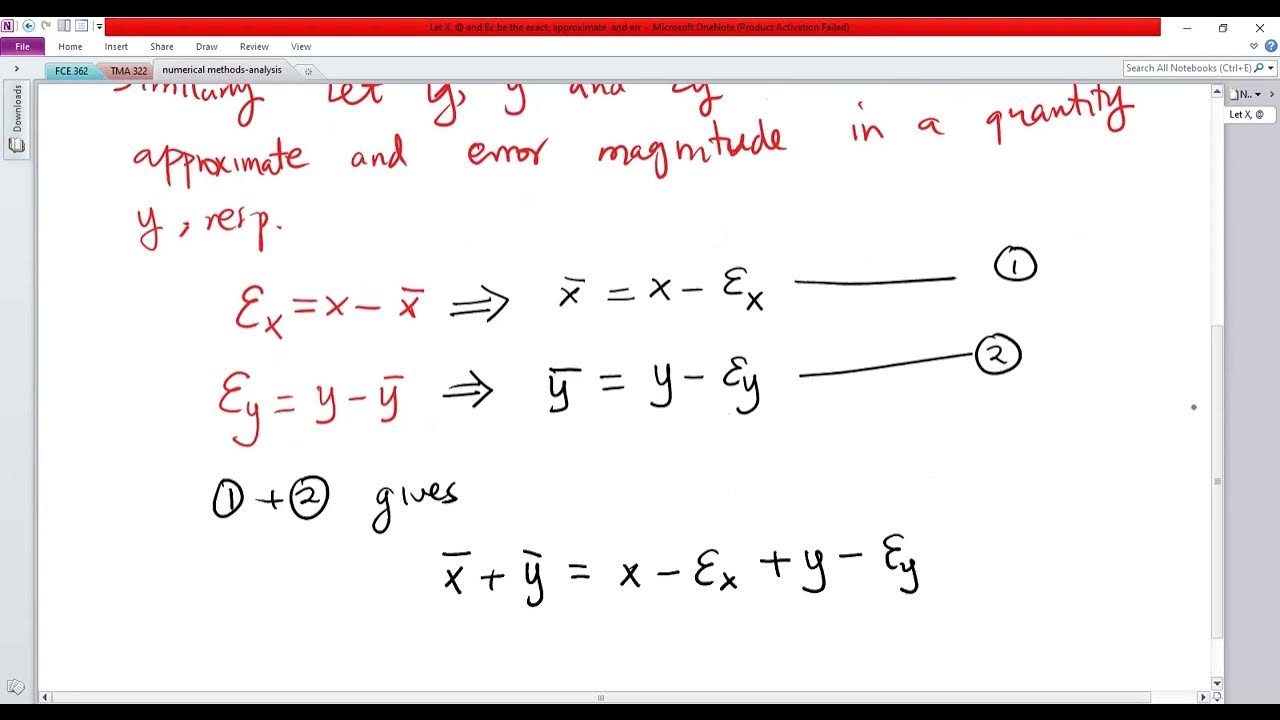 Let X, @ and Ex be the exact, approximate and err - Microsoft OneNote (Product Activation Failed)
File Home Insert Share Draw Review View
FCE 362 TMA 322 numerical methods-analysis
Search All Notebooks (Ctrl+E)
Downloads
N..
Let X, @
Similarly let y, ȳ and Ɛy
approximate and error magnitude in a quantity
y, resp.
Ɛₓ = x − x̄ ⇒ x̄ = x − Ɛₓ ——— ①
Ɛy = y − ȳ ⇒ ȳ = y − Ɛy ——— ②
① + ② gives
x̄ + ȳ = x − Ɛₓ + y − Ɛy